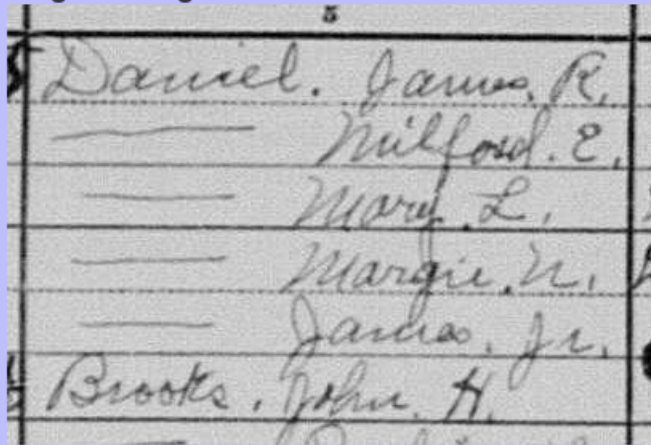 5
Daniel. James. R.
—— Milford. E.
—— Mary. L.
—— Margie. N.
—— James. Jr.
Brooks. John. H.